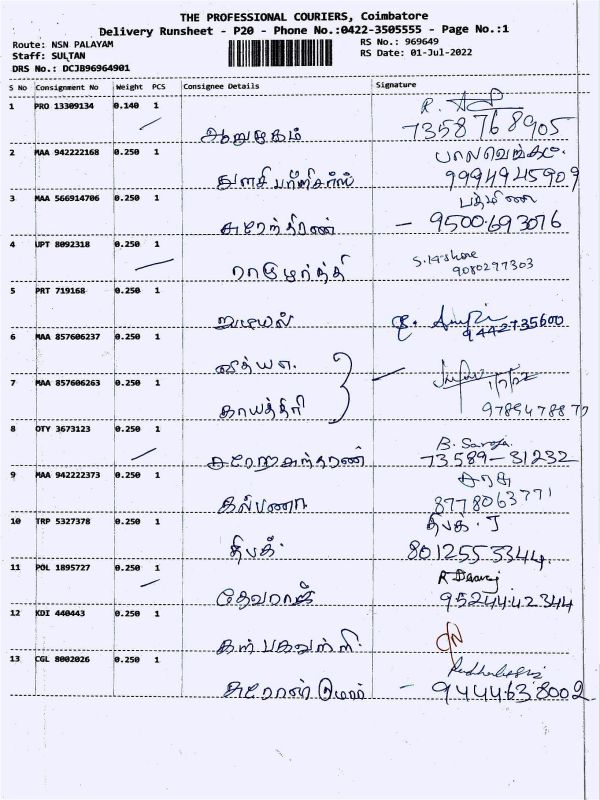 THE PROFESSIONAL COURIERS, Coimbatore
Delivery Runsheet - P20 - Phone No.:0422-3505555 - Page No.:1
Route: NSN PALAYAM
RS No.: 969649
Staff: SULTAN
RS Date: 01-Jul-2022
DRS No.: DCJB96964901
S No Consignment No Weight PCS Consignee Details Signature
1 PRO 13309134 0.140 1
ஆறுமுகம் 7358768905
2 MAA 942222168 0.250 1
துளசி பார்மசிஸ் 9994945909
3 MAA 566914706 0.250 1
சுரேந்திரன் - 9500693076
4 UPT 8092318 0.250 1
ராமமூர்த்தி S. Kishore
9080297303
5 PRT 719168 0.250 1
9442735600
6 MAA 857606237 0.250 1
வித்யா
7 MAA 857606263 0.250 1
1/7/22
காயத்திரி
8 OTY 3673123 0.250 1
B. Saroja
73589-31232
9 MAA 942222373 0.250 1
கல்பனா 8778063771
10 TRP 5327378 0.250 1
தீபக். J
தீபக் 8012553344
11 POL 1895727 0.250 1
தேவராஜ் 9524442344
12 KDI 440443 0.250 1
கற்பகவள்ளி
13 CGL 8002026 0.250 1
- 9444638002